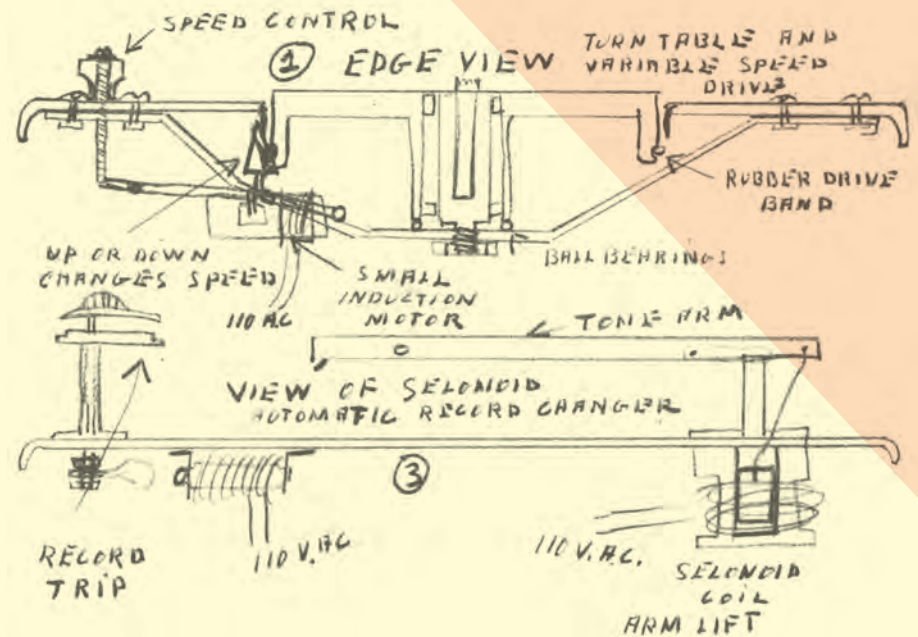 SPEED CONTROL
① EDGE VIEW
TURN TABLE AND
VARIABLE SPEED
DRIVE
RUBBER DRIVE
BAND
UP OR DOWN
CHANGES SPEED
110 A.C
SMALL
INDUCTION
MOTOR
BALL BEARINGS
TONE ARM
VIEW OF SELONOID
AUTOMATIC RECORD CHANGER
③
RECORD
TRIP
110 V. A.C
110 V. A.C.
SELONOID
COIL
ARM LIFT